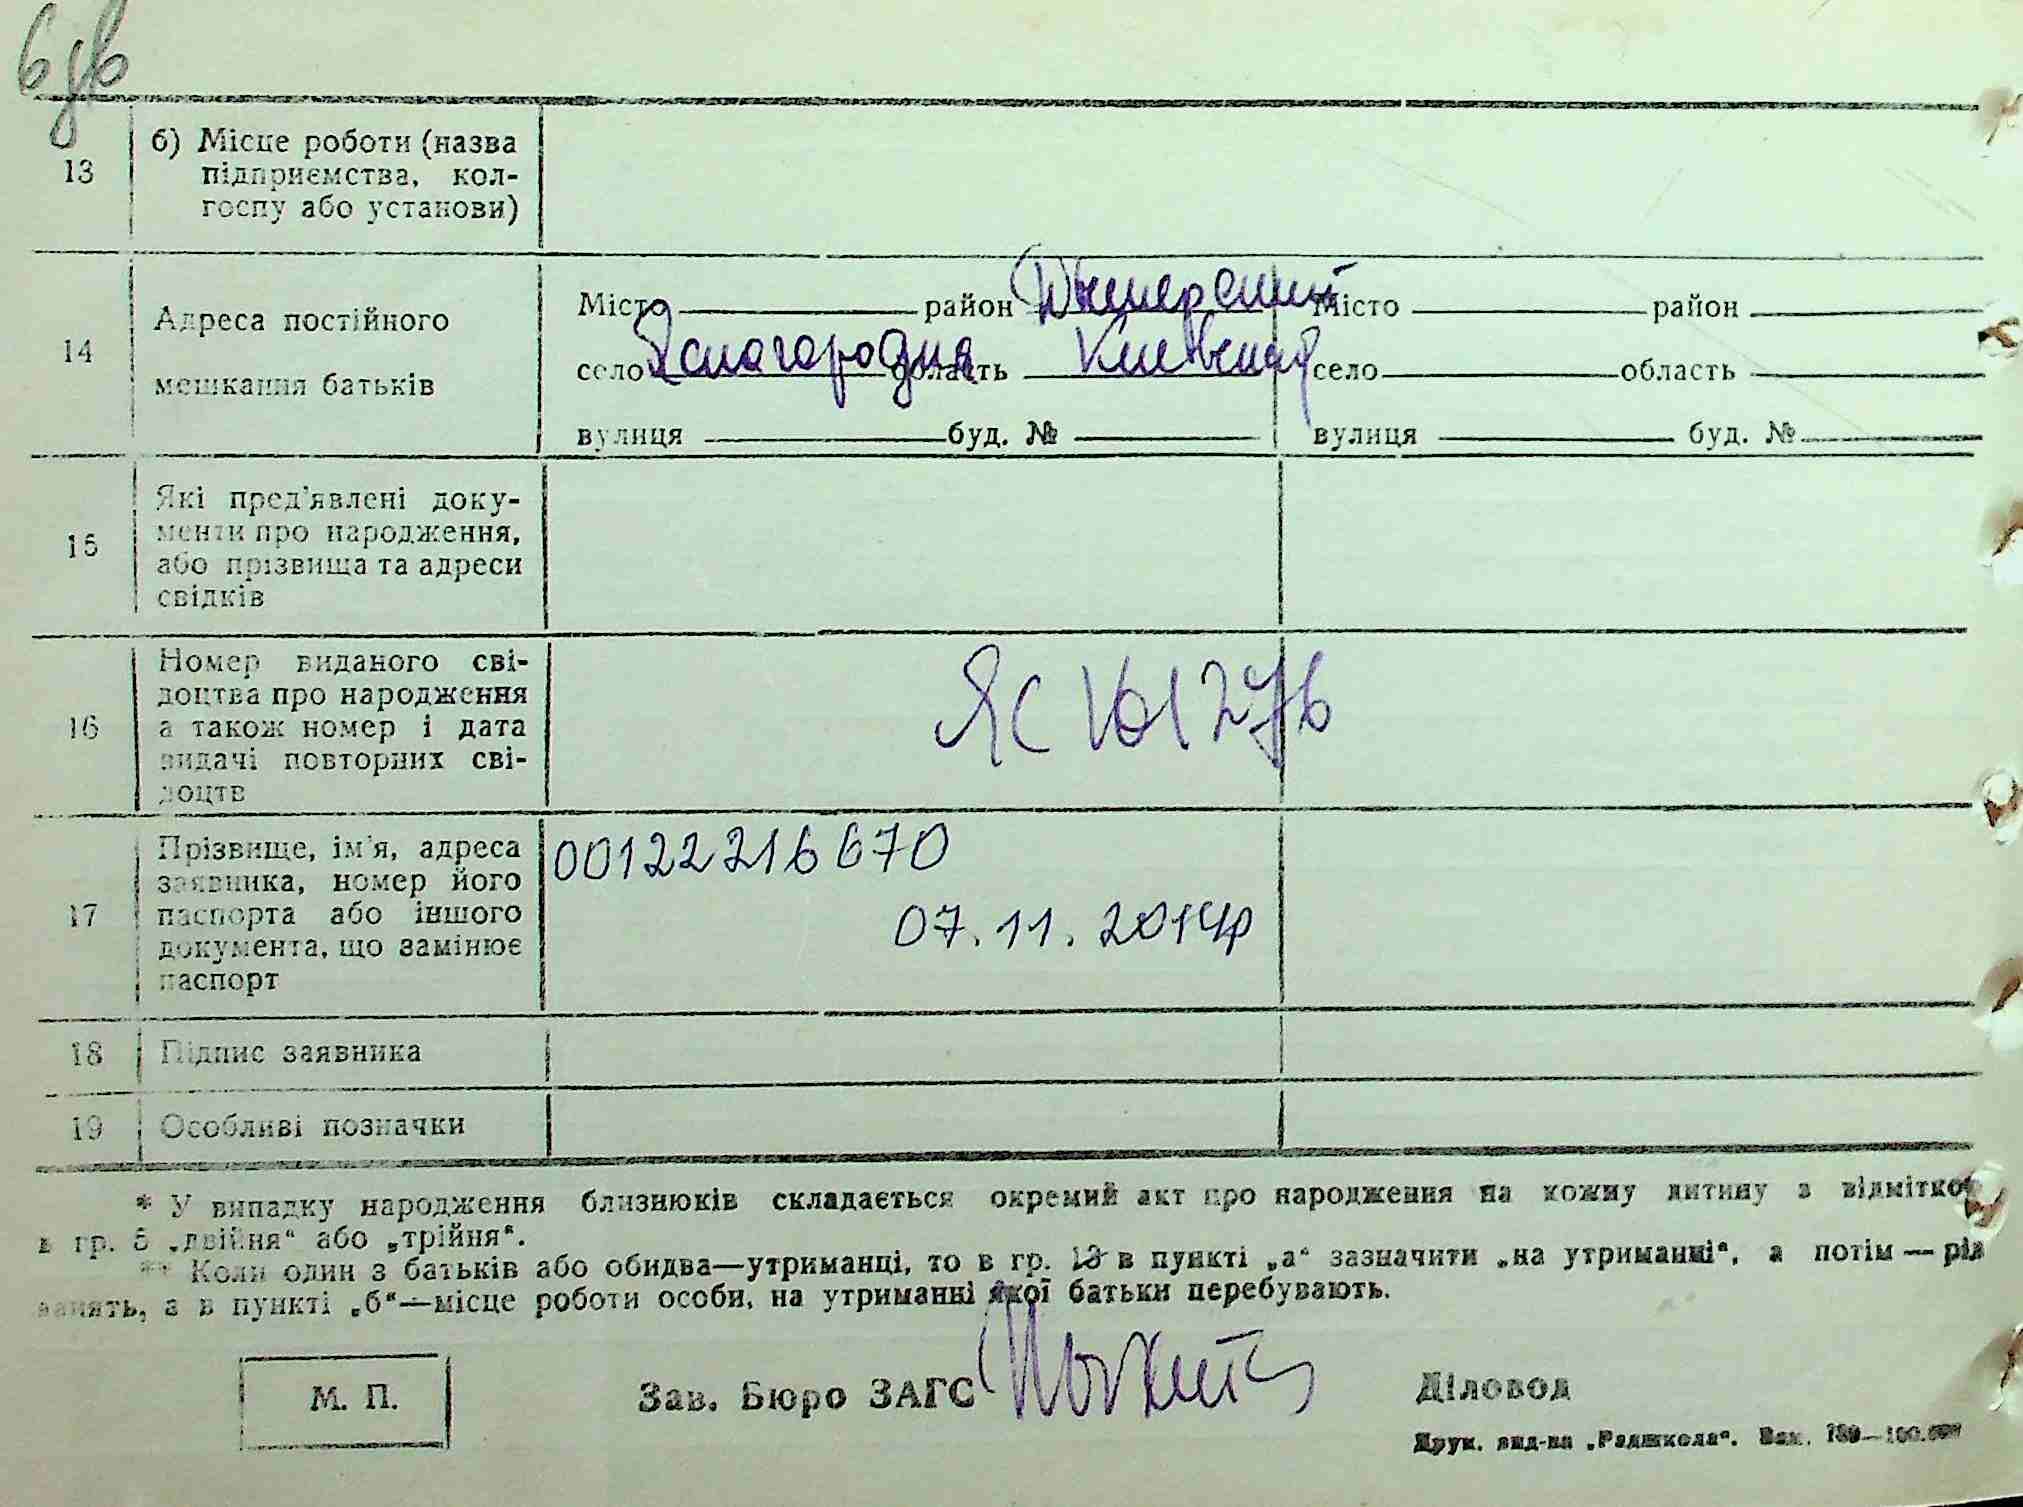 13
б) Місце роботи (назва
підприємства, кол-
госпу або установи)
14
Адреса постійного
мешкання батьків
Місто район Дымерский
село Ясногородка область Киевская
вулиця буд. №
Місто район
село область
вулиця буд. №
15
Які пред'явлені доку-
менти про народження,
або прізвища та адреси
свідків
16
Номер виданого сві-
доцтва про народження
а також номер і дата
видачі повторних сві-
доцтв
ЯС 161276
17
Прізвище, ім'я, адреса
заявника, номер його
паспорта або іншого
документа, що замінює
паспорт
00122216670
07.11.2014р
18
Підпис заявника
19
Особливі позначки
* У випадку народження близнюків складається окремий акт про народження на кожну дитину з відміткою
в гр. 5 „двійня“ або „трійня“.
** Коли один з батьків або обидва—утриманці, то в гр. 13 в пункті „а“ зазначити „на утриманні“, а потім — рід
занять, а в пункті „б“—місце роботи особи, на утриманні якої батьки перебувають.
М. П.
Зав. Бюро ЗАГС
Діловод
Друк. вид-ва „Радшкола“. Зам.